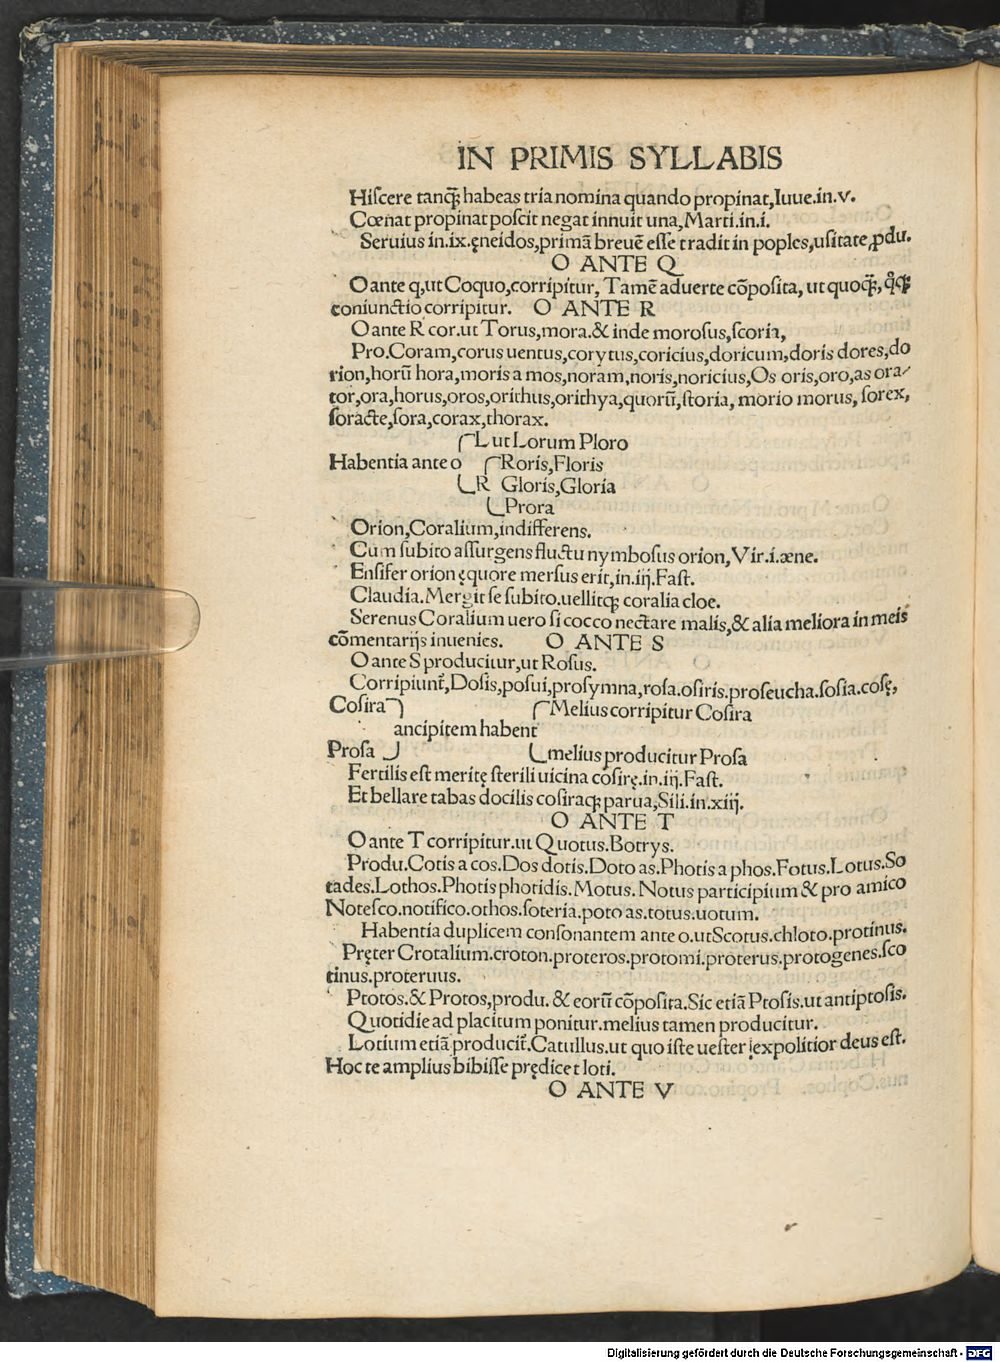 IN PRIMIS SYLLABIS
Hiſcere tanqȝ habeas tria nomina quando propinat,Iuue.in.v.
Cœnat propinat poſcit negat innuit una,Marti.in.i.
Seruius in.ix.ęneidos,primā breuē eſſe tradit in poples,uſitate,ꝓdu.
O ANTE Q
O ante q,ut Coquo,corripitur, Tamē aduerte cōpoſita, ut quoqȝ,
coniunctio corripitur. O ANTE R
O ante R cor.ut Torus,mora.& inde moroſus,ſcoria,
Pro.Coram,corus uentus,corytus,coricius,doricum,doris dores,do
rion,horū hora,moris a mos,noram,noris,noricius,Os oris,oro,as ora-
tor,ora,horus,oros,orithus,orithya,quorū,ſtoria, morio morus, ſorex,
ſoracte,ſora,corax,thorax.
L ut Lorum Ploro
Habentia ante o Roris,Floris
R Gloris,Gloria
Prora
Orion,Coralium,indifferens.
Cum ſubito aſſurgens fluctu nymboſus orion,Vir.i.æne.
Enſifer orion ęquore merſus erit,in.iij.Faſt.
Claudia.Mergit ſe ſubito.uellitqȝ coralia cloe.
Serenus Coralium uero ſi cocco nectare malis,& alia meliora in meis
cōmentarijs inuenies. O ANTE S
O ante S producitur,ut Roſus.
Corripiunt̄,Doſis,poſui,proſymna,roſa.oſiris.proſeucha.ſoſia.coſę,
Coſira Melius corripitur Coſira
ancipitem habent
Proſa melius producitur Proſa
Fertilis eſt meritę ſterili uicina coſirę.in.iij.Faſt.
Et bellare tabas docilis coſiraqȝ parua,Sili.in.xiij.
O ANTE T
O ante T corripitur.ut Quotus.Botrys.
Produ.Cotis a cos.Dos dotis.Doto as.Photis a phos.Fotus.Lotus.So
tades.Lothos.Photis photidis.Motus. Notus participium & pro amico
Noteſco.notifico.othos.ſoteria.poto as.totus.uotum.
Habentia duplicem conſonantem ante o.utScotus.chloto.protinus.
Pręter Crotalium.croton.proteros.protomi.proterus.protogenes.ſco
tinus.proteruus.
Ptotos.& Protos,produ. & eorū cōpoſita.Sic etiā Ptoſis.ut antiptoſis.
Quotidie ad placitum ponitur.melius tamen producitur.
Lotium etiā producit̄.Catullus.ut quo iſte ueſter expolitior deus eſt.
Hoc te amplius bibiſſe prędicet loti.
O ANTE V
Digitalisierung gefördert durch die Deutsche Forschungsgemeinschaft - DFG